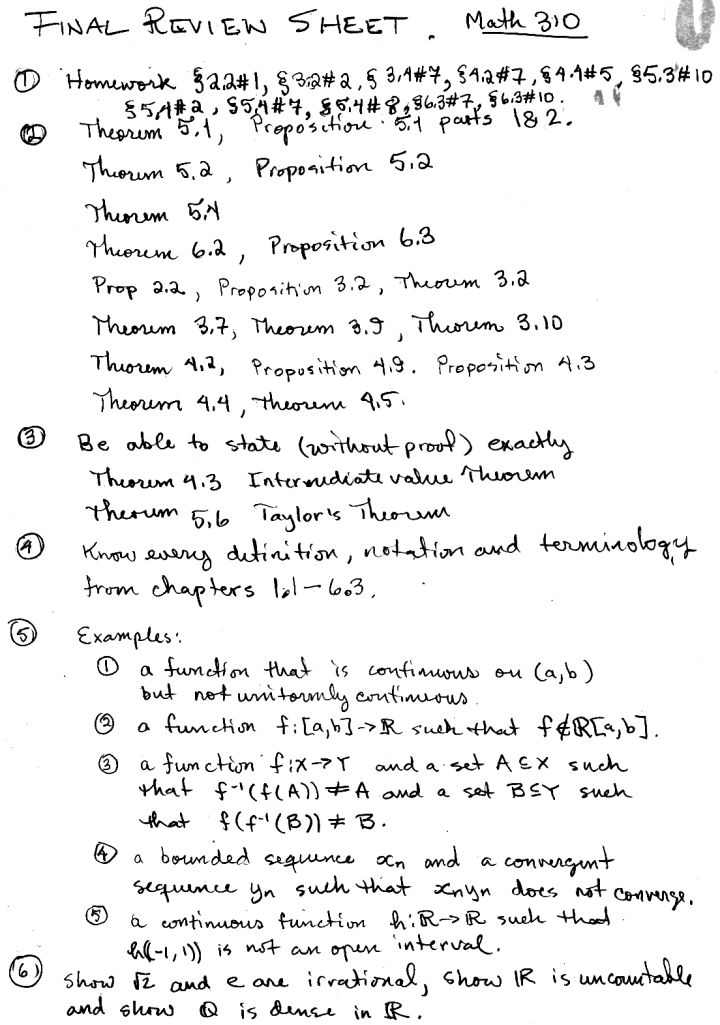 FINAL REVIEW SHEET. Math 310
① Homework §2.2#1, §3.2#2, §3.4#7, §4.2#7, §4.4#5, §5.3#10
§5.4#2, §5.4#7, §5.4#8, §6.3#7, §6.3#10.
② Theorem 5.1, Proposition 5.1 parts 1&2.
Theorem 5.2, Proposition 5.2
Theorem 5.4
Theorem 6.2, Proposition 6.3
Prop 2.2, Proposition 3.2, Theorem 3.2
Theorem 3.7, Theorem 3.9, Theorem 3.10
Theorem 4.2, Proposition 4.9. Proposition 4.3
Theorem 4.4, Theorem 4.5.
③ Be able to state (without proof) exactly
Theorem 4.3 Intermediate value Theorem
Theorem 5.6 Taylor's Theorem
④ Know every definition, notation and terminology
from chapters 1.1-6.3.
⑤ Examples:
① a function that is continuous on (a,b)
but not uniformly continuous.
② a function f:[a,b]->ℝ such that f∉ℝ[a,b].
③ a function f:X->Y and a set A⊆X such
that f⁻¹(f(A))≠A and a set B⊆Y such
that f(f⁻¹(B))≠B.
④ a bounded sequence xn and a convergent
sequence yn such that xnyn does not converge.
⑤ a continuous function h:ℝ->ℝ such that
h((-1,1)) is not an open interval.
⑥ Show √2 and e are irrational, show ℝ is uncountable
and show ℚ is dense in ℝ.